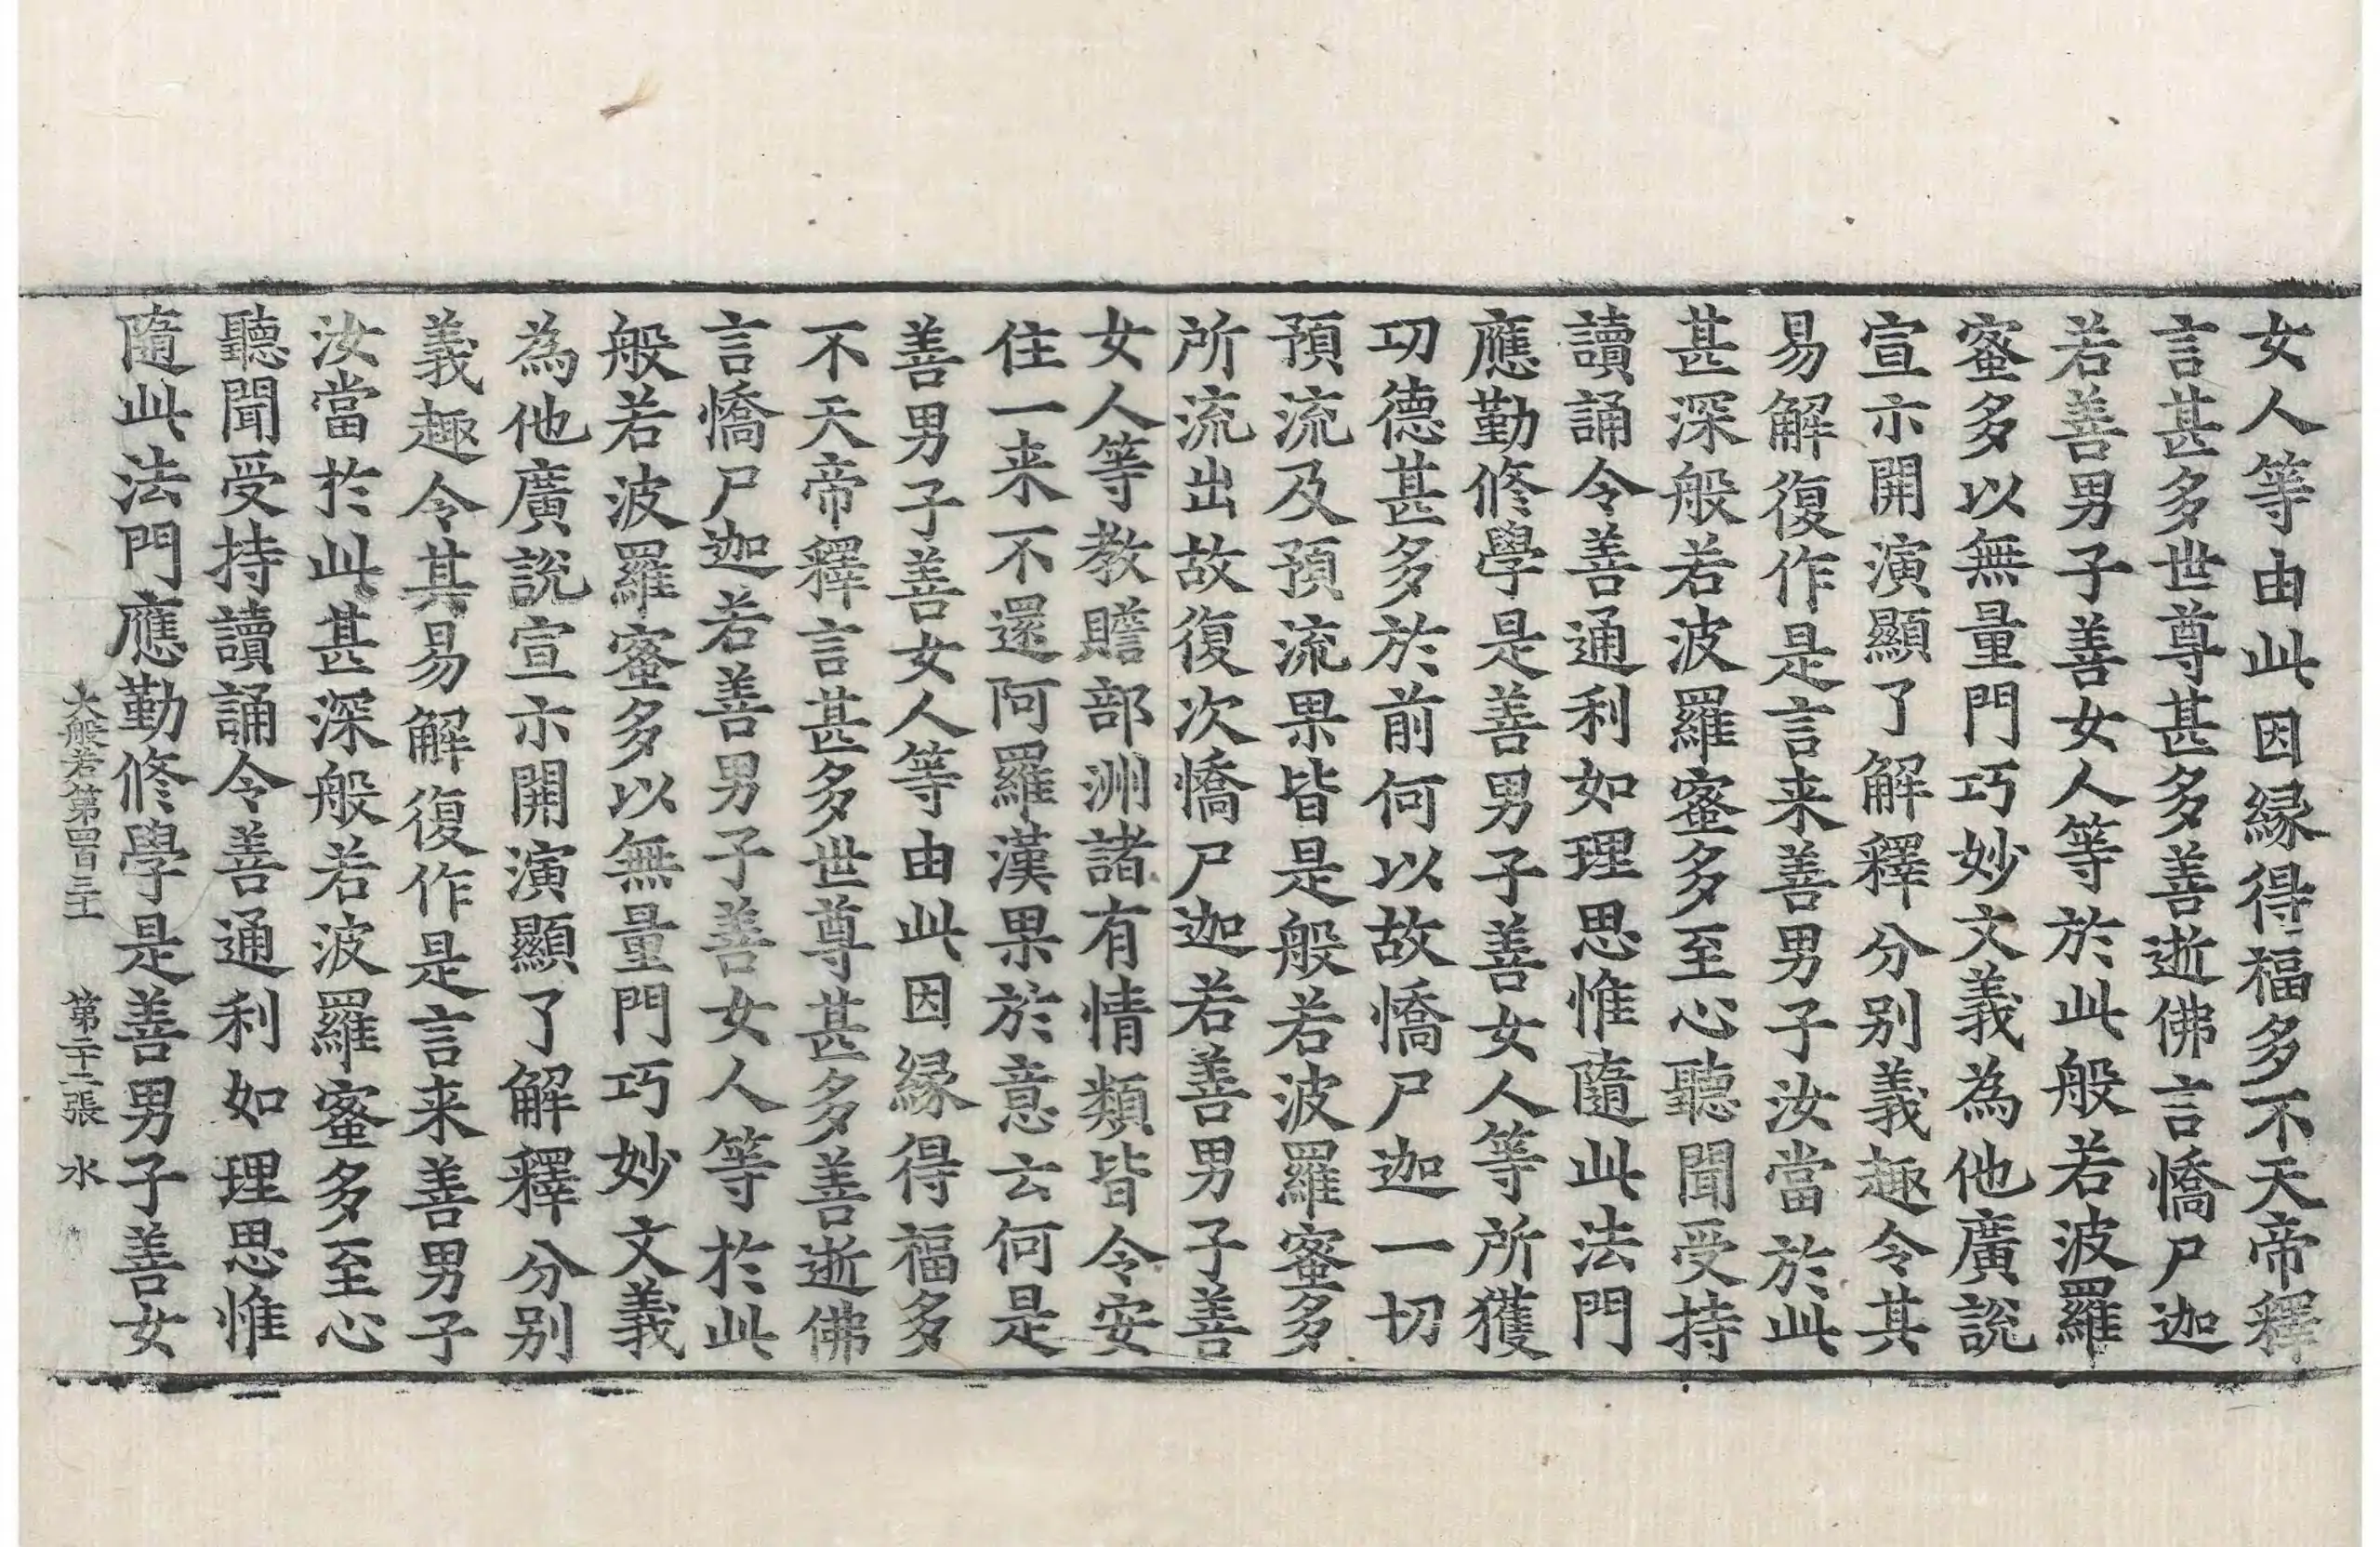 女人等由此因縁得福多不天帝釋
言甚多世尊甚多善逝佛言憍尸迦
若善男子善女人等於此般若波羅
蜜多以無量門巧妙文義為他廣說
宣示開演顯了解釋分别義趣令其
易解復作是言来善男子汝當於此
甚深般若波羅蜜多至心聽聞受持
讀誦令善通利如理思惟隨此法門
應勤修學是善男子善女人等所獲
功德甚多於前何以故憍尸迦一切
預流及預流果皆是般若波羅蜜多
所流出故復次憍尸迦若善男子善
女人等教贍部洲諸有情類皆令安
住一来不還阿羅漢果於意云何是
善男子善女人等由此因縁得福多
不天帝釋言甚多世尊甚多善逝佛
言憍尸迦若善男子善女人等於此
般若波羅蜜多以無量門巧妙文義
為他廣說宣示開演顯了解釋分别
義趣令其易解復作是言来善男子
汝當於此甚深般若波羅蜜多至心
聽聞受持讀誦令善通利如理思惟
隨此法門應勤修學是善男子善女
大般若第四百三十 第二十二張 水